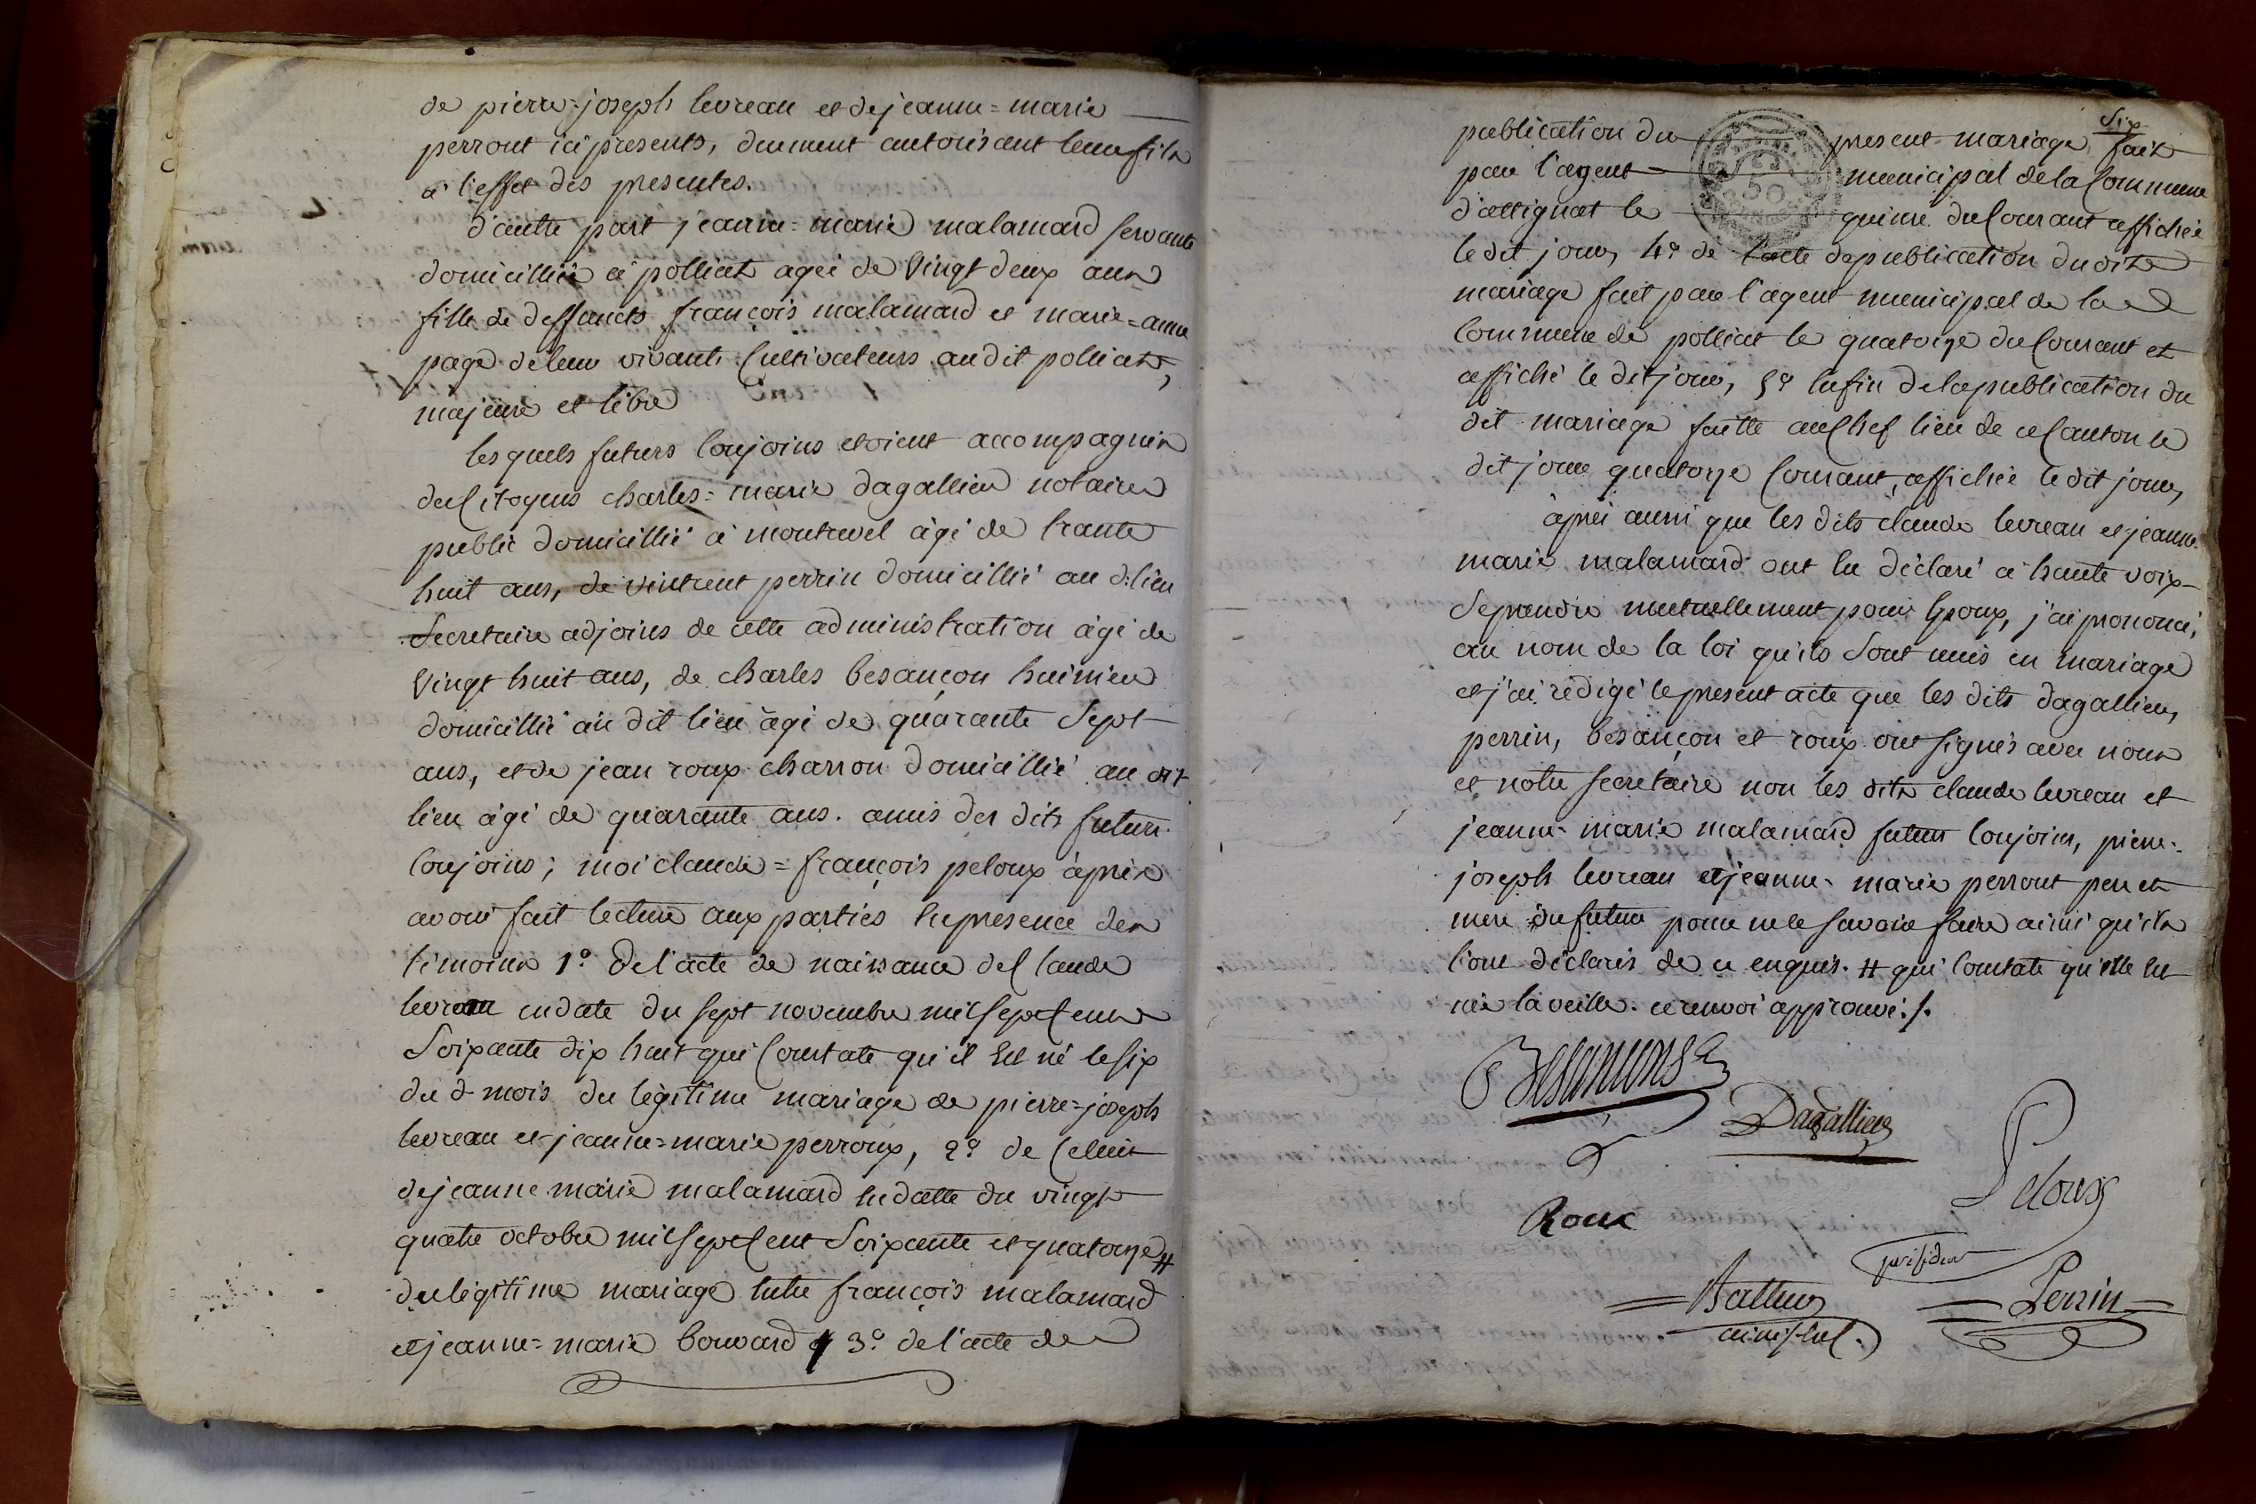 de pierre=joseph levreau et de jeanne=marie
perrout ici presents, duement autorisant leur fils
a l'effet des presentes.
d'autre part jeanne=marie malamard servante
domicilliée a polliat agée de vingt deux ans
fille de deffuncts françois malamard et marie=anne
page de leur vivant Cultivateurs au dit polliat,
majeure et libre
les quels futurs Conjoins etoient accompagnés
des Citoyens charles=marie dagallier notaire
public domicillié à montrevel âgé de trante
huit ans, de vintrent perrin domicillié au d. lieu
Secretaire adjoins de cette administration âgé de
vingt huit ans, de charles besançon huissier
domicillié au dit lieu âgé de quarante Sept
ans, et de jean roux charron domicillié au dit
lieu âgé de quarante ans. amis des dits futurs
Conjoins; moi claude=françois peloux après
avoir fait lecture aux parties En presence des
témoins 1º. de l'acte de naissance de Claude
levreau en date du sept novembre mil sept Cent
Soixante dix huit qui Constate qu'il Est né le six
du d. mois du légitime mariage de pierre=joseph
levreau et jeanne=marie perroux, 2º de Celuit
de jeanne marie malamard En datte du vingt
quatre octobre mil sept Cent Soixante et quatorze #
du légitime mariage Entre françois malamard
et jeanne=marie bouvard 3º. de l'acte de
Six
publication du present mariage fait
par l'agent municipal de la Commune
d'attignat le quinze du Courant affichée
le dit jour, 4º. de l'acte de publication du dit
mariage fait par l'agent municipal de la
Commune de polliat le quatorze du Courant et
affiché le dit jour, 5º Enfin de la publication du
dit mariage faitte au Chef lieu de ce Canton le
dit jour quatorze Courant, affichée le dit jour,
après aussi que les dits claude levreau et jeanne
marie malamard ont Eu déclaré a haute voix
Se prendre mutuellement pour Epoux, j'ai prononcé,
au nom de la loi qu'ils Sont unis en mariage
et j'ai rédigé le present acte que les dits dagallier,
perrin, besançon et roux ont signés avec nous
et notre secretaire non les dits claude levreau et
jeanne=marie malamard futurs Conjoins, pierre=
joseph levreau et jeanne=marie perrout pere et
mere du futur pour ne le savoir faire ainsi qu'ils
l'ont déclarés de ce enquis. # qui Constate qu'elle Est
née la veille. ce renvoi approuvé ./.
Besançons
Dagallier
Peloux
Roux
président
Perrin